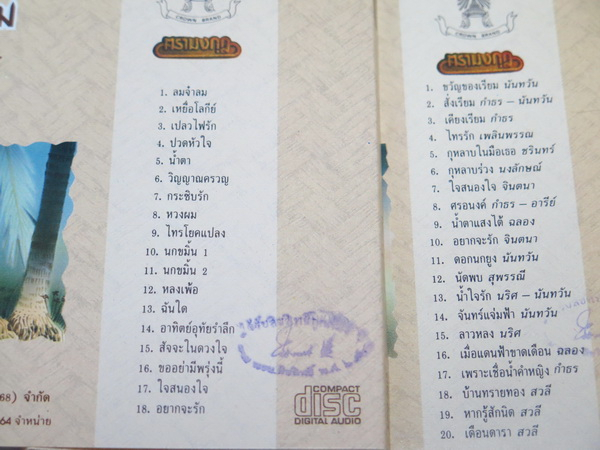 CROWN BRAND
ตรามงกุฎ
1. ลมจ๋าลม
2. เหยื่อโลกีย์
3. เปลวไฟรัก
4. ปวดหัวใจ
5. น้ำตา
6. วิญญาณครวญ
7. กระซิบรัก
8. หวงผม
9. ไทรโยคแปลง
10. นกขมิ้น 1
11. นกขมิ้น 2
12. หลงเพ้อ
13. ฉันใด
14. อาทิตย์อุทัยรำลึก
15. สัจจะในดวงใจ
16. ขออย่ามีพรุ่งนี้
17. ใจสนองใจ
18. อยากจะรัก
COMPACT
disc
DIGITAL AUDIO
68) จำกัด
64 จำหน่าย
CROWN BRAND
ตรามงกุฎ
1. ขวัญของเรียม นันทวัน
2. สั่งเรียม กำธร – นันทวัน
3. เคียงเรียม กำธร
4. ไทรรัก เพลินพรรณ
5. กุหลาบในมือเธอ ชรินทร์
6. กุหลาบร่วง นงลักษณ์
7. ใจสนองใจ จินตนา
8. ศรอนงค์ กำธร – อารีย์
9. น้ำตาแสงไต้ ฉลอง
10. อยากจะรัก จินตนา
11. ดอกนกยูง นันทวัน
12. นัดพบ สุพรรณี
13. น้ำใจรัก นริศ – นันทวัน
14. จันทร์แจ่มฟ้า นันทวัน
15. ลาวหลง นริศ
16. เมื่อแดนฟ้าขาดเดือน ฉลอง
17. เพราะเชื่อน้ำคำหญิง กำธร
18. บ้านทรายทอง สวลี
19. หากรู้สักนิด สวลี
20. เดือนดารา สวลี